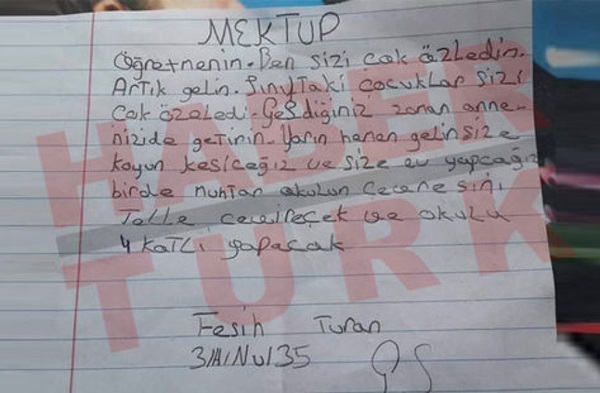 MEKTUP
Öğretnenin. Ben sizi cok özledin.
Artık gelin. Sınıftaki çocuklar sizi
Cok özledi. Geldiğiniz zonan anne-
nizide getirin. Yarın henen gelin size
koyun kesiceğiz ve size ev yapcağız
birde nuhtar okulun Cecenesini
Telle cevireçek ve okulu
4 katlı yapacak
Fesih Turan
3/A/No/35
HABER
TURK